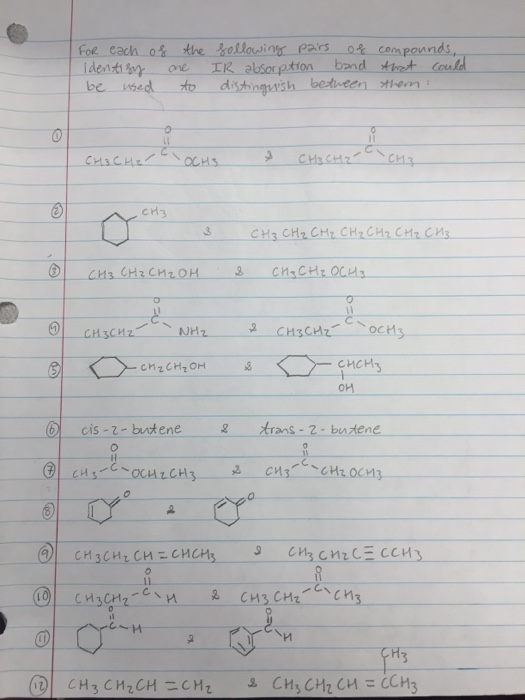 For each of the following pairs of compounds,
identify one IR absorption band that could
be used to distinguish between them:
① CH3CH2-C(=O)-OCH3 & CH3CH2-C(=O)-CH3
② CH3 & CH3 CH2 CH2 CH2 CH2 CH2 CH3
③ CH3 CH2CH2OH & CH3CH2OCH3
④ CH3CH2-C(=O)-NH2 & CH3CH2-C(=O)-OCH3
⑤ -CH2CH2OH & -CHCH3
OH
⑥ cis-2-butene & trans-2-butene
⑦ CH3-C(=O)-OCH2CH3 & CH3-C(=O)-CH2OCH3
⑧ =O & =O
⑨ CH3CH2CH=CHCH3 & CH3CH2C≡CCH3
⑩ CH3CH2-C(=O)-H & CH3CH2-C(=O)-CH3
⑪ -C(=O)-H & -C(=O)-H
CH3
⑫ CH3CH2CH=CH2 & CH3CH2CH=CCH3